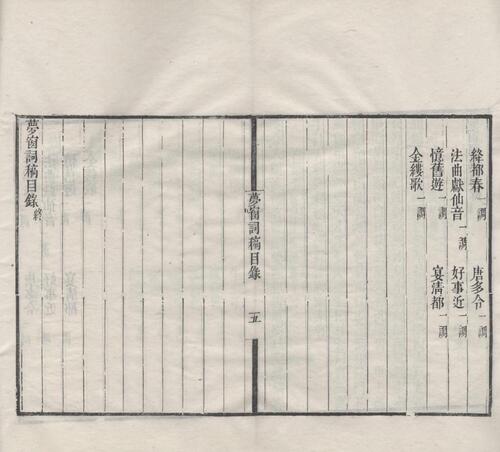 絳都春一調　唐多令一調
法曲獻仙音一調　好事近一調
憶舊遊一調　宴清都一調
金縷歌一調
夢窗詞稿目錄　五
夢窗詞稿目錄終